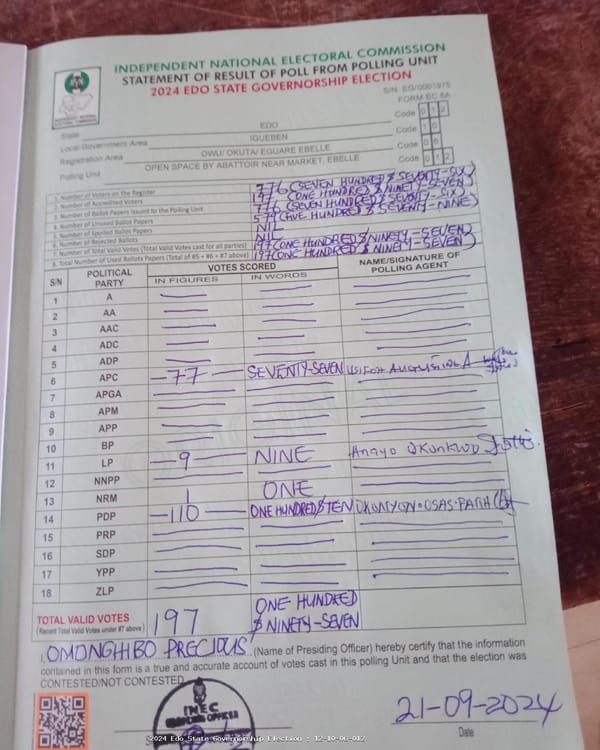 INDEPENDENT NATIONAL ELECTORAL COMMISSION
STATEMENT OF RESULT OF POLL FROM POLLING UNIT
2024 EDO STATE GOVERNORSHIP ELECTION
S/N: EG/0001975
FORM EC 8A
State EDO Code 0 1 2
Local Government Area IGUEBEN Code 1 0
Registration Area OWU/ OKUTA/ EGUARE EBELLE Code 0 6
Polling Unit OPEN SPACE BY ABATTOIR NEAR MARKET, EBELLE Code 0 1 2
1. Number of Voters on the Register 776 (SEVEN HUNDRED & SEVENTY-SIX)
2. Number of Accredited Voters 197 (ONE HUNDRED & NINETY-SEVEN)
3. Number of Ballot Papers Issued to the Polling Unit 776 (SEVEN HUNDRED & SEVENTY-SIX)
4. Number of Unused Ballot Papers 579 (FIVE HUNDRED & SEVENTY-NINE)
5. Number of Spoiled Ballot Papers NIL
6. Number of Rejected Ballots NIL
7. Number of Total Valid Votes (Total Valid Votes cast for all parties) 197 (ONE HUNDRED & NINETY-SEVEN)
8. Total Number of Used Ballots Papers (Total of #5 + #6 + #7 above) 197 (ONE HUNDRED & NINETY-SEVEN)
S/N POLITICAL PARTY VOTES SCORED NAME/SIGNATURE OF POLLING AGENT
IN FIGURES IN WORDS
1 A
2 AA
3 AAC
4 ADC
5 ADP
6 APC 77 SEVENTY-SEVEN
7 APGA
8 APM
9 APP
10 BP
11 LP 9 NINE Anayo Okonkwo
12 NNPP
13 NRM 1 ONE
14 PDP 110 ONE HUNDRED & TEN
15 PRP
16 SDP
17 YPP
18 ZLP
TOTAL VALID VOTES 197 ONE HUNDRED & NINETY-SEVEN
(Record Total Valid Votes under #7 above)
I, OMONGHIBO PRECIOUS (Name of Presiding Officer) hereby certify that the information
contained in this form is a true and accurate account of votes cast in this polling Unit and that the election was
CONTESTED/NOT CONTESTED
INEC
21-09-2024
Date
2024 Edo State Governorship Election : 12-10-06-012